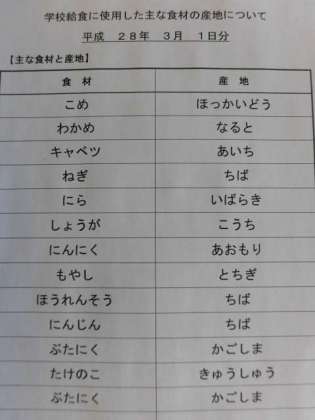 学校給食に使用した主な食材の産地について
平成 28年 3月 1日分
【主な食材と産地】
食材 産地
こめ ほっかいどう
わかめ なると
キャベツ あいち
ねぎ ちば
にら いばらき
しょうが こうち
にんにく あおもり
もやし とちぎ
ほうれんそう ちば
にんじん ちば
ぶたにく かごしま
たけのこ きゅうしゅう
ぶたにく かごしま